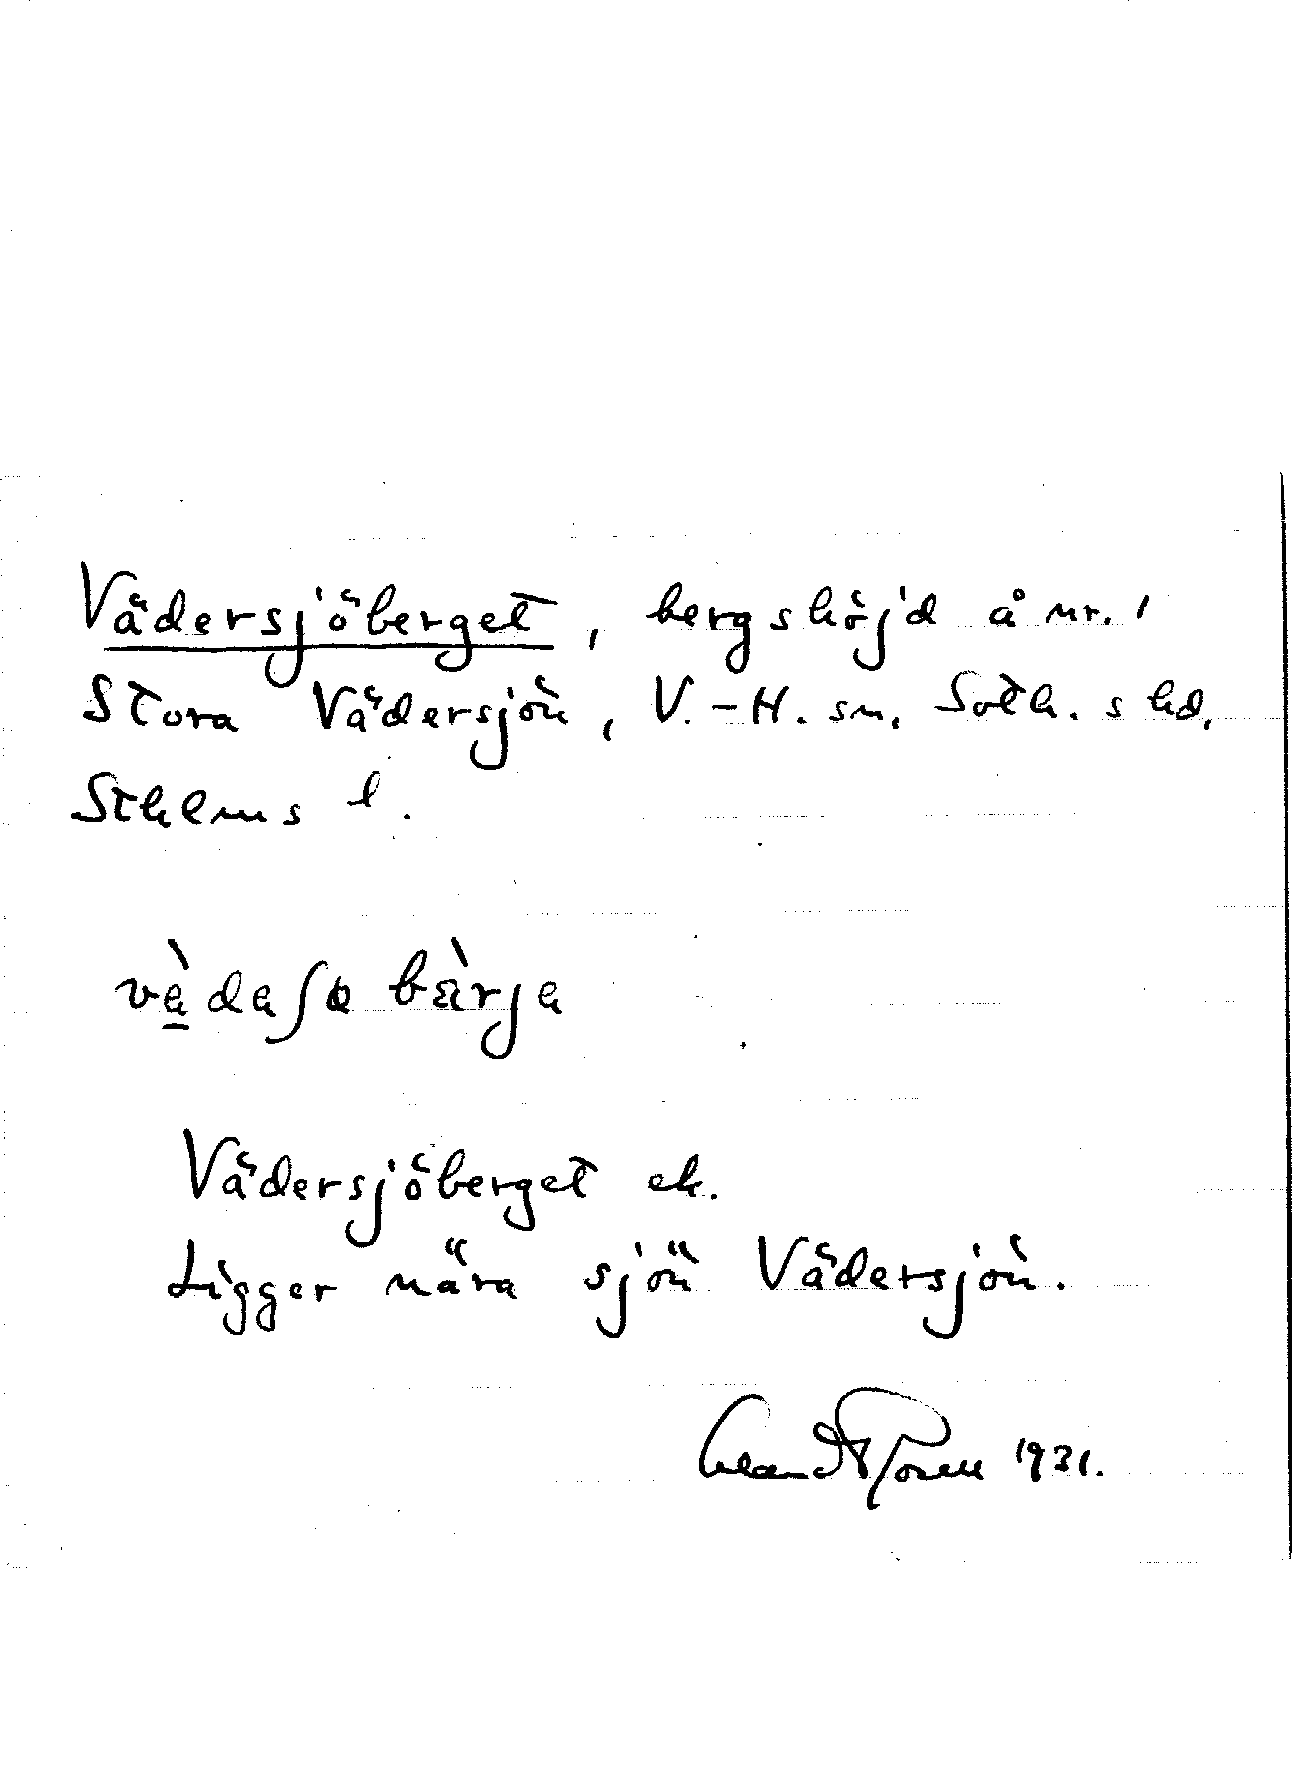 Vädersjöberget, bergshöjd å nr. 1
Stora Vädersjön, V.-H. sn. Soth. s hd.
Sthlms l.
Vädersjöberget ek.
Ligger nära sjön Vädersjön.
1931.